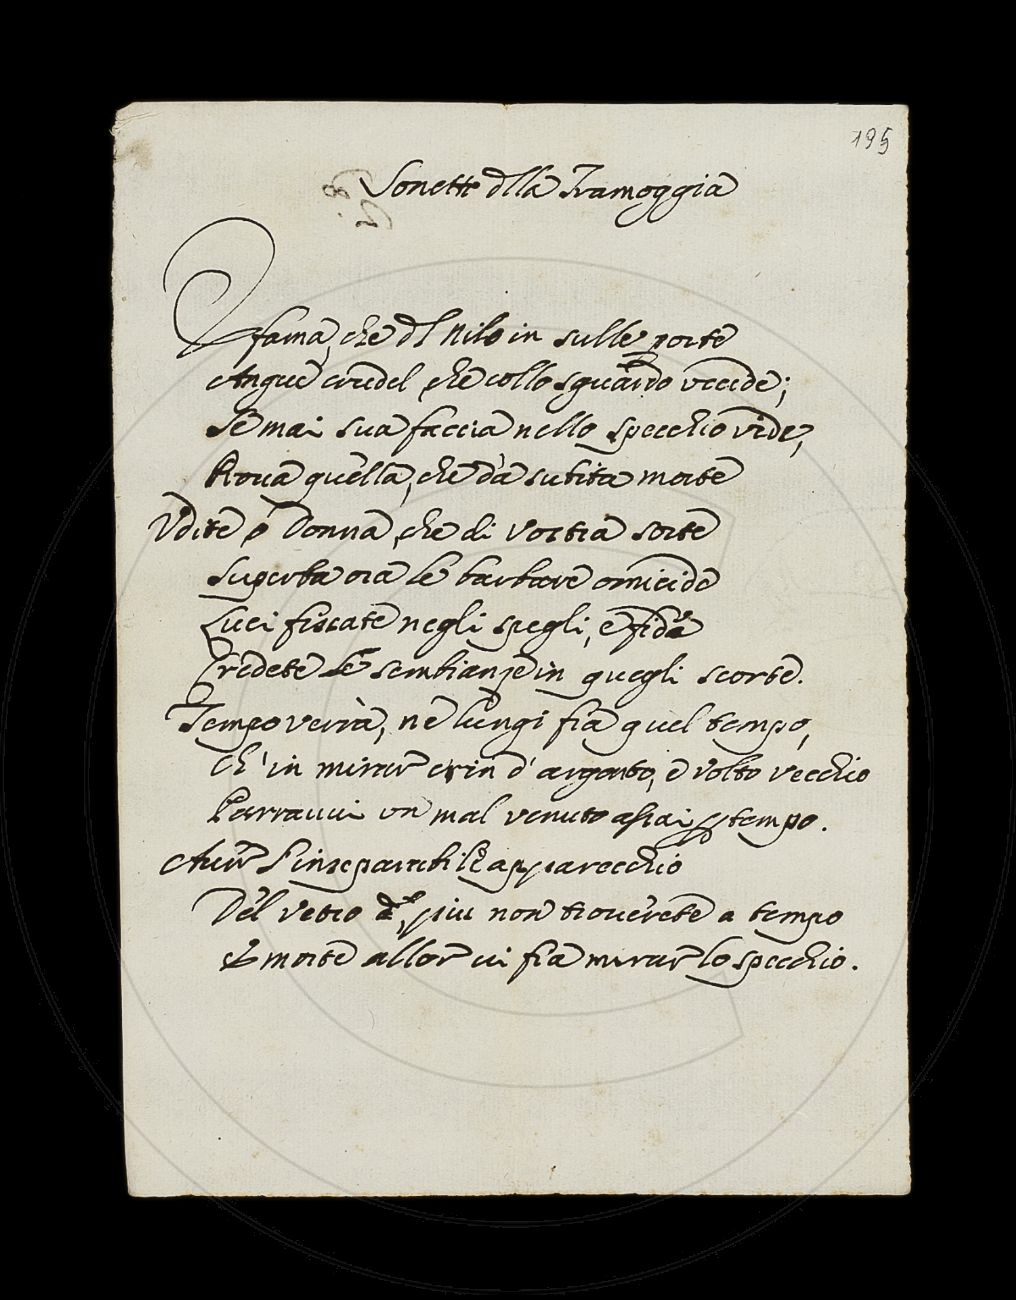 195
Sonetto dlla Tramoggia
È fama, che dl Nilo in sulle porte
Angue crudel, che collo sguardo uccide;
Se mai sua faccia nello specchio vide,
Prova quella, che dà subita morte
Udite ò Donna, che di vostra sorte
Superba ora le barbare omicide
Luci fissate negli spegli, e fida
Credete le sembianze in quegli scorte.
Tempo verrà, nè lungi fia quel tempo,
Ch'in mirar crin d'argento, e volto vecchio
Parravvi un mal venuto assai p tempo.
Aur l'inseparabile apparecchio
Del vetro più non troverete a tempo
E morte allor vi fia mirar lo specchio.